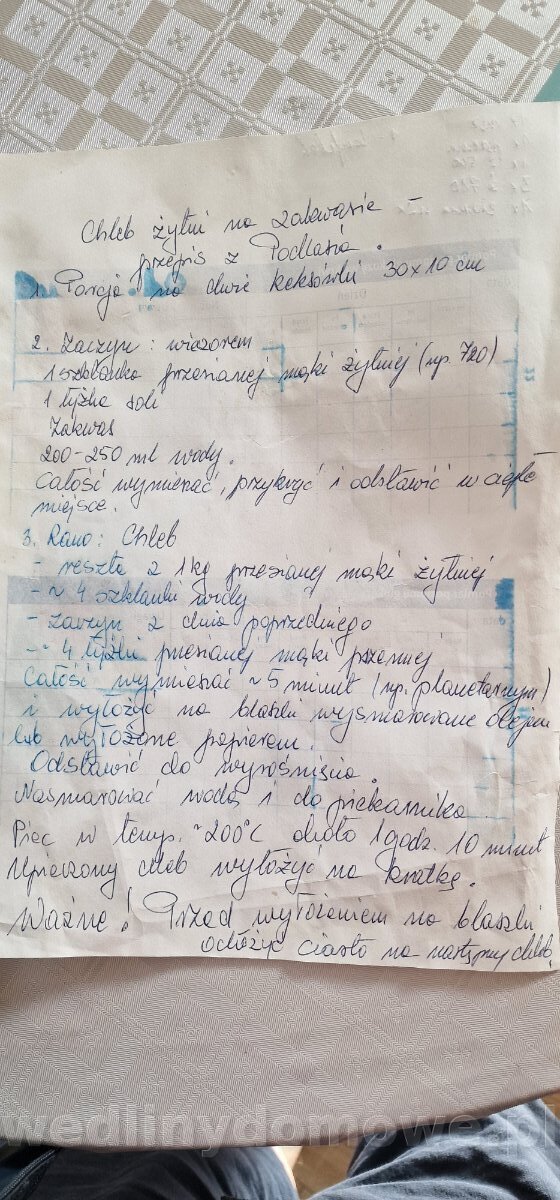 Chleb żytni na zakwasie –
przepis z Podlasia.
1. Porcja na dwie keksówki 30x10 cm
2. Zaczyn: wieczorem
1 szklanka przesianej mąki żytniej (np. 720)
1 łyżka soli
Zakwas
200-250 ml wody.
Całość wymieszać, przykryć i odstawić w ciepłe
miejsce.
3. Rano: Chleb
- reszta z 1 kg przesianej mąki żytniej
- ~ 4 szklanki wody
- zaczyn z dnia poprzedniego
- ~ 4 łyżki przesianej mąki pszennej
Całość wymieszać ~ 5 minut (np. planetarnym)
i wyłożyć na blaszki wysmarowane olejem
lub wyłożone papierem.
Odstawić do wyrośnięcia.
Nasmarować wodą i do piekarnika
Piec w temp. ~200°C około 1 godz. 10 minut
Upieczony chleb wyłożyć na kratkę.
Ważne! Przed wyłożeniem na blaszki
odłożyć ciasto na następny chleb.
wedlinydomowe.pl